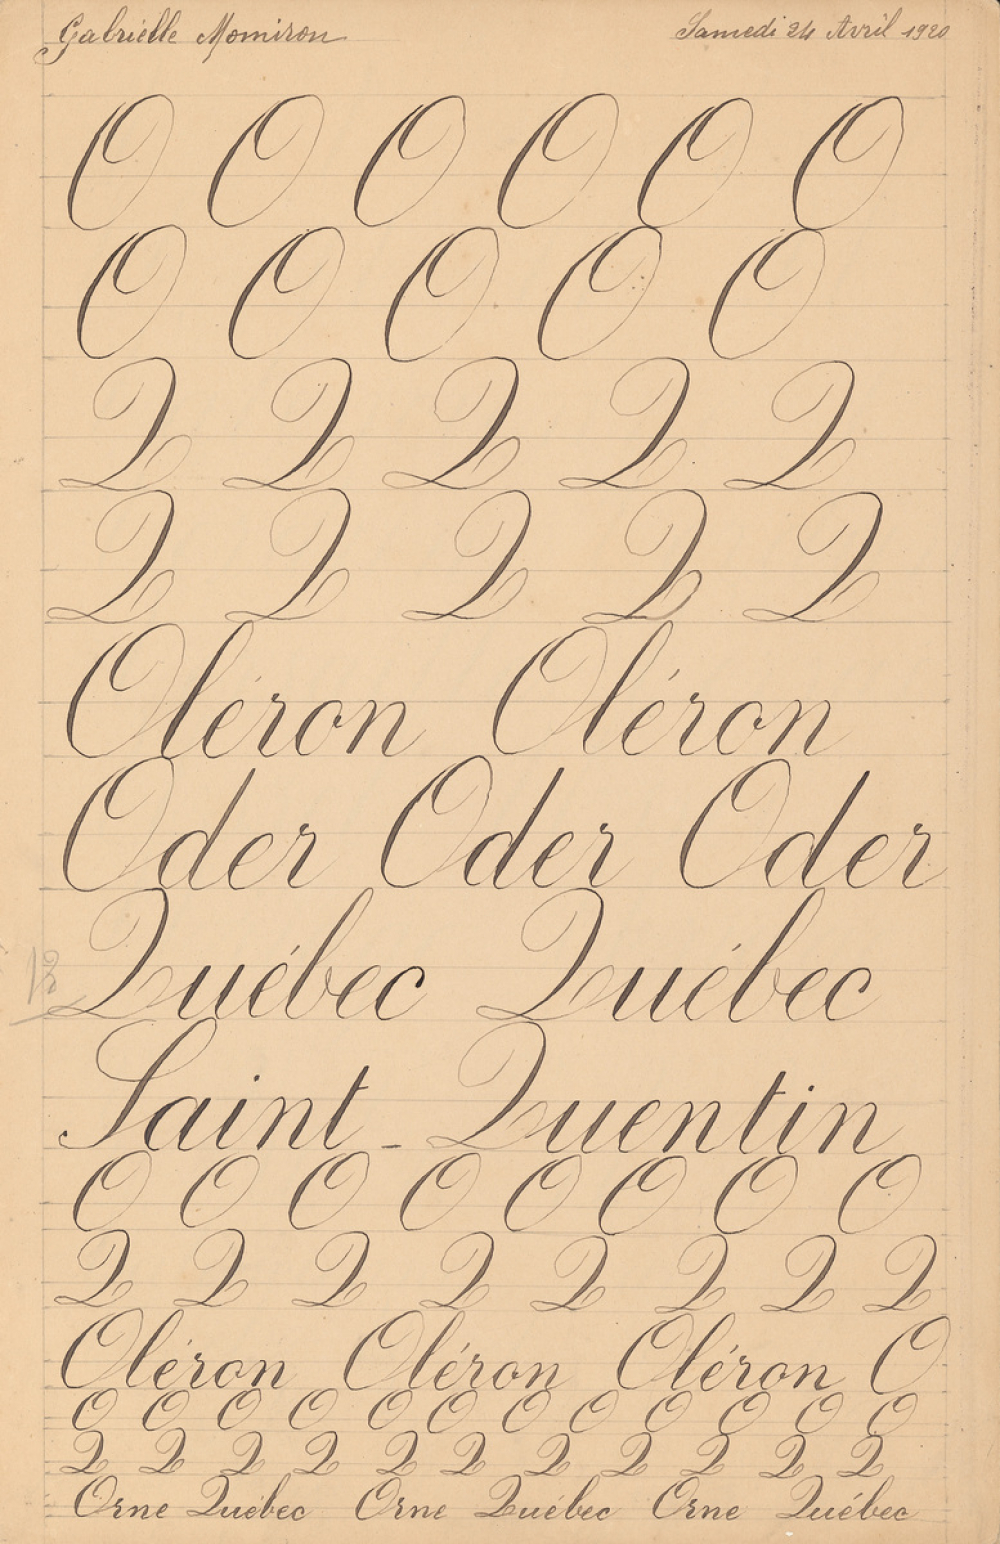 Gabrielle Momiron Samedi 24 Avril 1920
O O O O O O
O O O O O
Q Q Q Q Q
Q Q Q Q Q
Oléron Oléron
Oder Oder Oder
Québec Québec
Saint-Quentin
O O O O O O O O
Q Q Q Q Q Q Q Q
Oléron Oléron Oléron O
O O O O O O O O O O O O
Q Q Q Q Q Q Q Q Q Q Q
Orne Québec Orne Québec Orne Québec